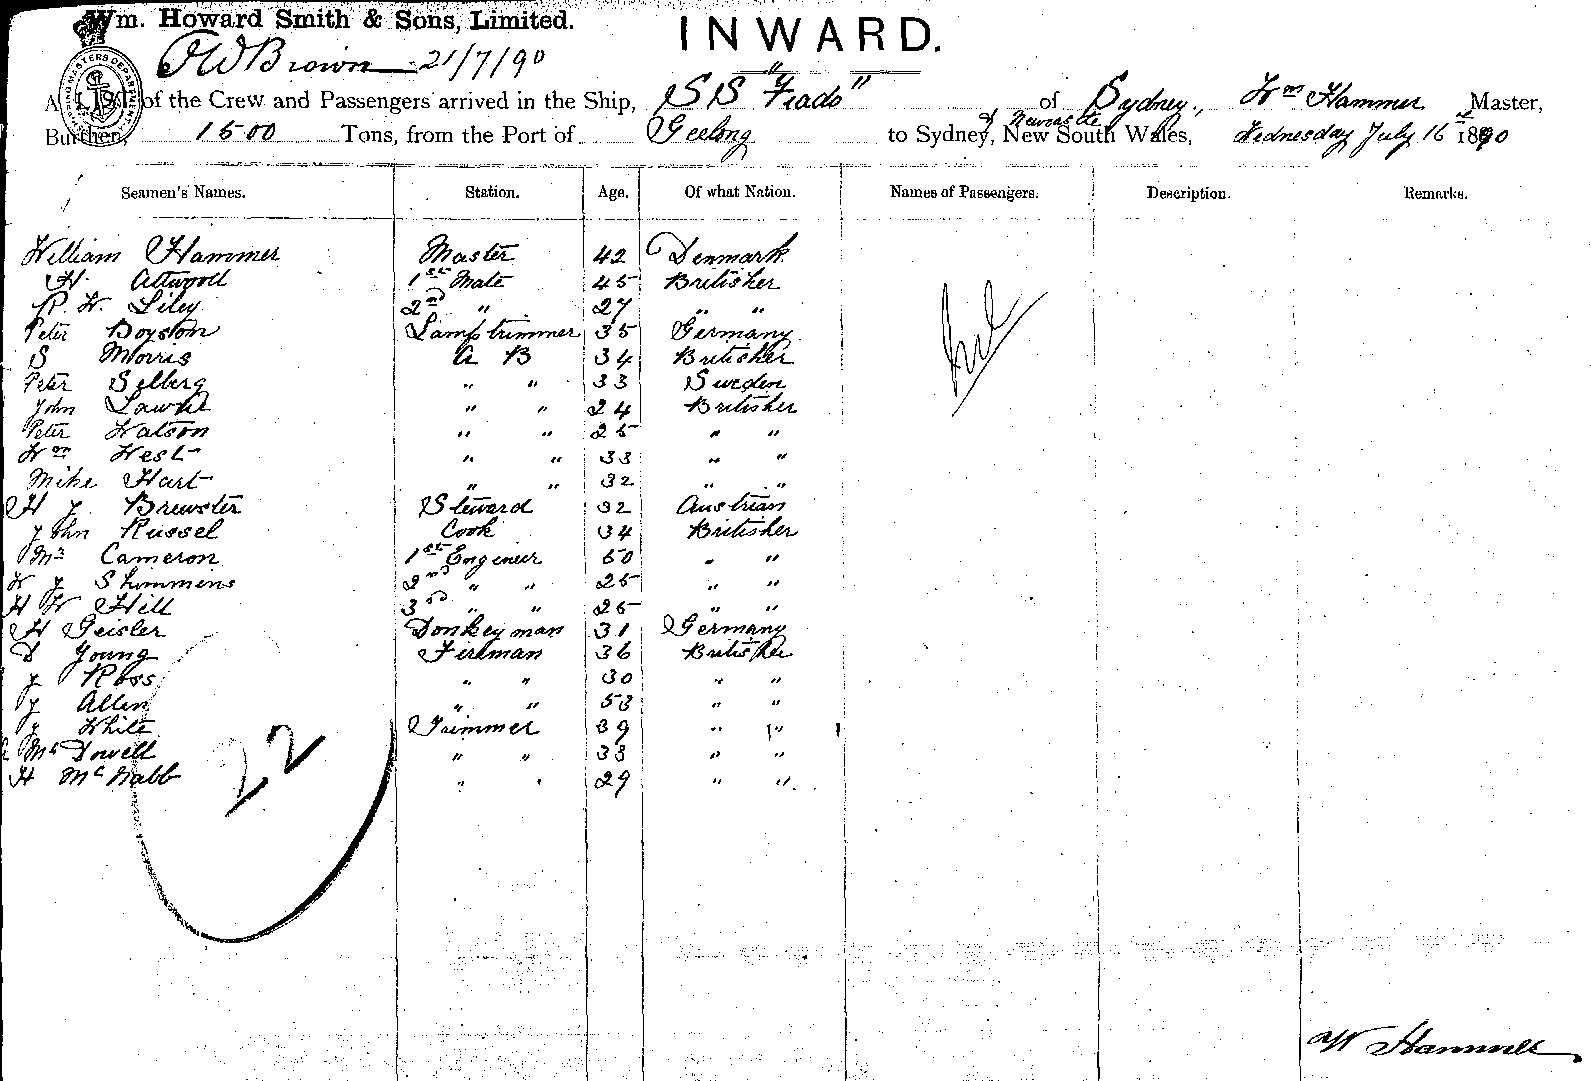 Wm. Howard Smith & Sons, Limited.
INWARD.
Brown 21/7/90
of the Crew and Passengers arrived in the Ship, SS of Sydney, Wm Hammer Master,
Burthen, 1500 Tons, from the Port of Geelong to Sydney, & Newcastle New South Wales, Wednesday July 16th 1890
Seamen's Names. Station. Age. Of what Nation. Names of Passengers. Description. Remarks.
William Hammer Master 42 Denmark
H. Attwoll 1st Mate 45 Britisher
R. W. Liley 2nd " 27 " "
Peter Doyston Lamptrimmer 35 Germany
S Morris A B 34 Britisher
Peter Selberg " " 33 Sweden
John " " 24 Britisher
Peter Watson " " 25 " "
Wm West " " 33 " "
Mike Hart " " 32 " "
H J Brewster Steward 32 Austrian
John Russel Cook 34 Britisher
Cameron 1st Engineer 50 " "
W J Shimmens 2nd " " 25 " "
H W Hill 3rd " " 25 " "
H Geisler Donkeyman 31 Germany
D Young Fireman 36 Britisher
J Ross " " 30 " "
J Allen " " 53 " "
J White Trimmer 39 " "
McDowell " " 33 " "
H McNabb " " 29 " "
Nil
22
W Hammer